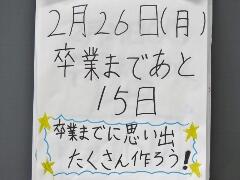 2月26日(月)
卒業まであと
15日
卒業までに思い出、
たくさん作ろう!